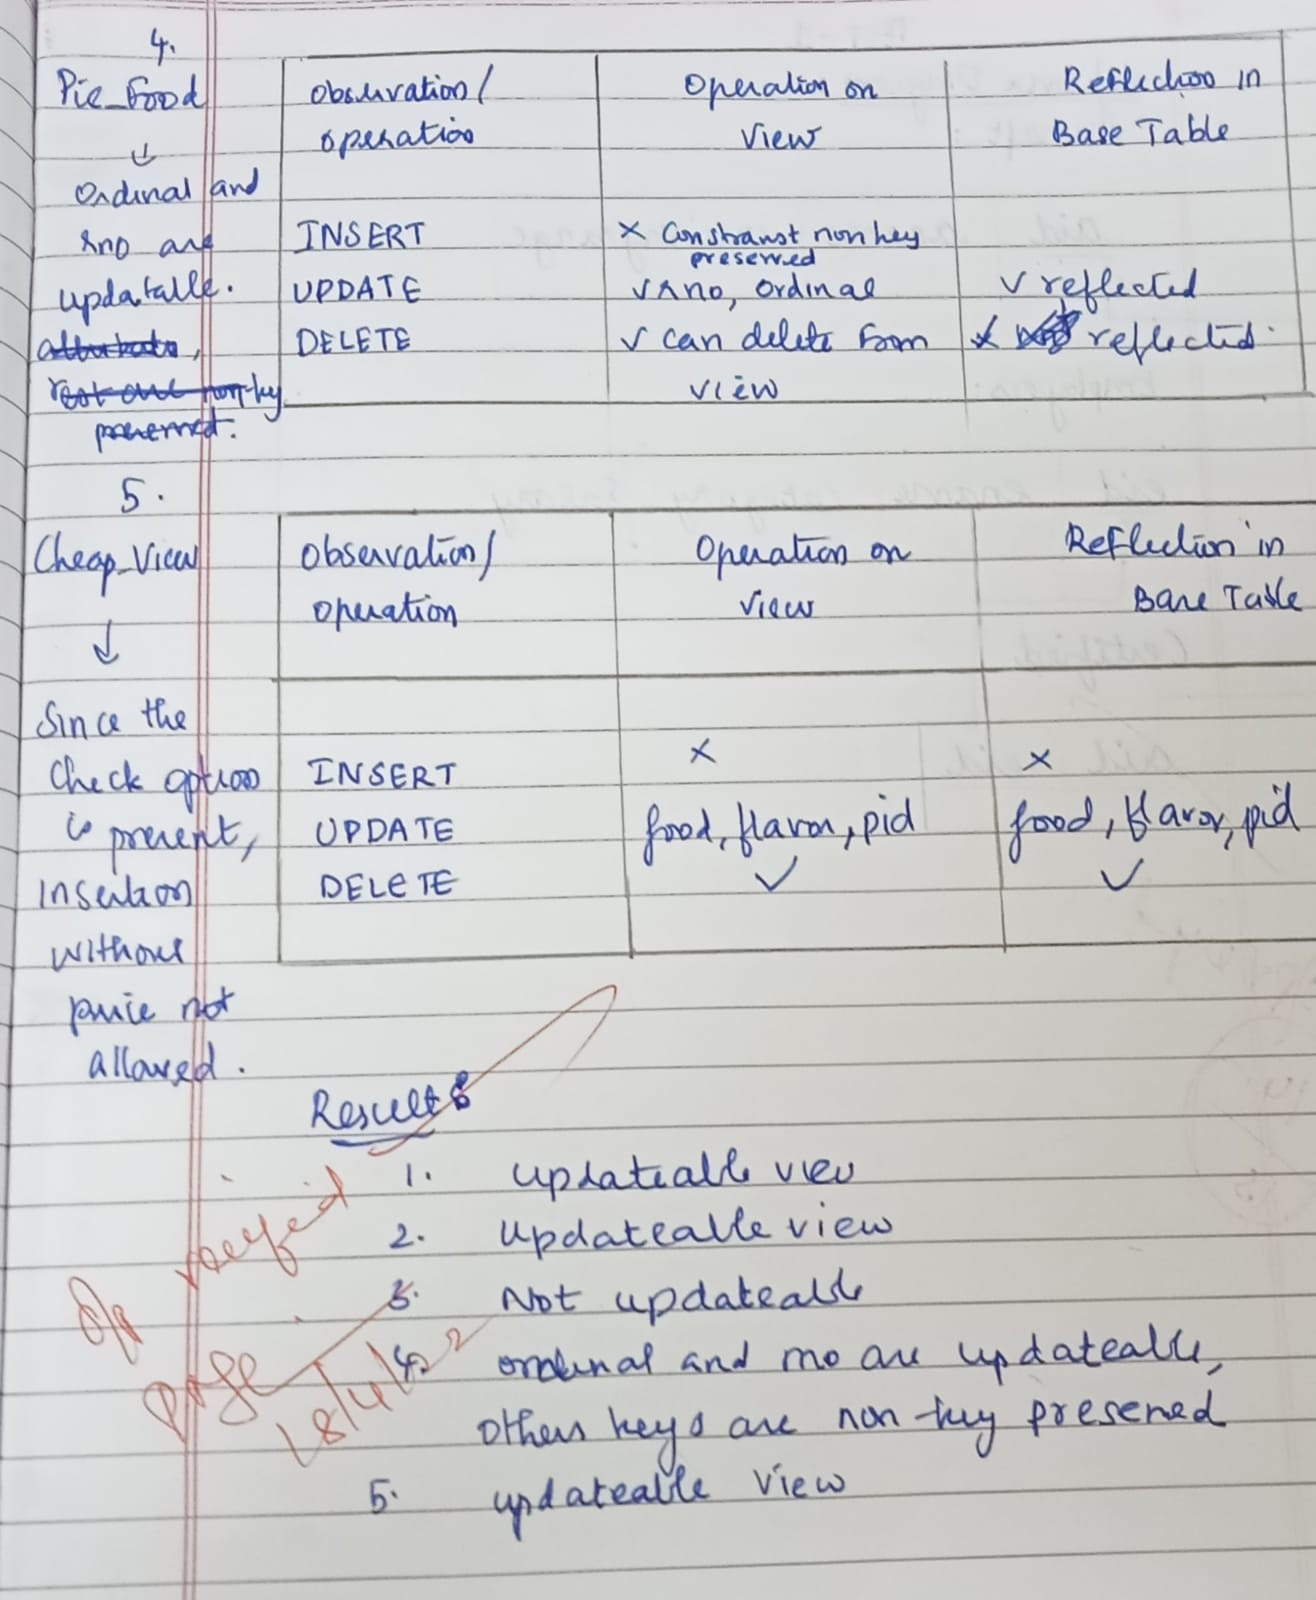 4.
Pie_Food
↓
Ordinal and
rno are
updatable.
attributes,
rest are non-key
preserved.
Observation/ operation | Operation on View | Reflection in Base Table
INSERT | x Constraint non key preserved
UPDATE | ✓ rno, ordinal | ✓ reflected
DELETE | ✓ can delete from view | reflected.
5.
Cheap_View
↓
Since the
check option
is present,
insertion
without
price not
allowed.
Observation/ Operation | Operation on View | Reflection in Base Table
INSERT | x | x
UPDATE | food, flavor, pid | food, flavor, pid
DELETE | ✓ | ✓
Result:
1. updateable view
2. updateable view
3. Not updateable
4. ordinal and rno are updateable,
others keys are non-key preserved
5. updateable view
18/4/22